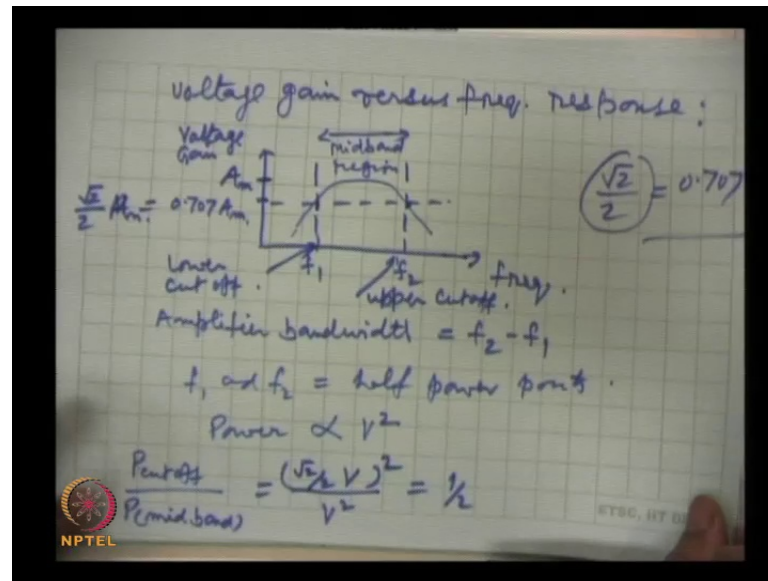 Voltage gain versus freq. response:
Voltage
Gain
midband
region
Am
√2/2 Am = 0.707 Am
√2/2 = 0.707
Lower
cut off.
f1
f2
freq.
upper cutoff.
Amplifier bandwidth = f2 - f1
f1 ad f2 = half power points.
Power ∝ V²
Pcutoff/P(midband) = (√2/2 V)²/V² = 1/2
NPTEL